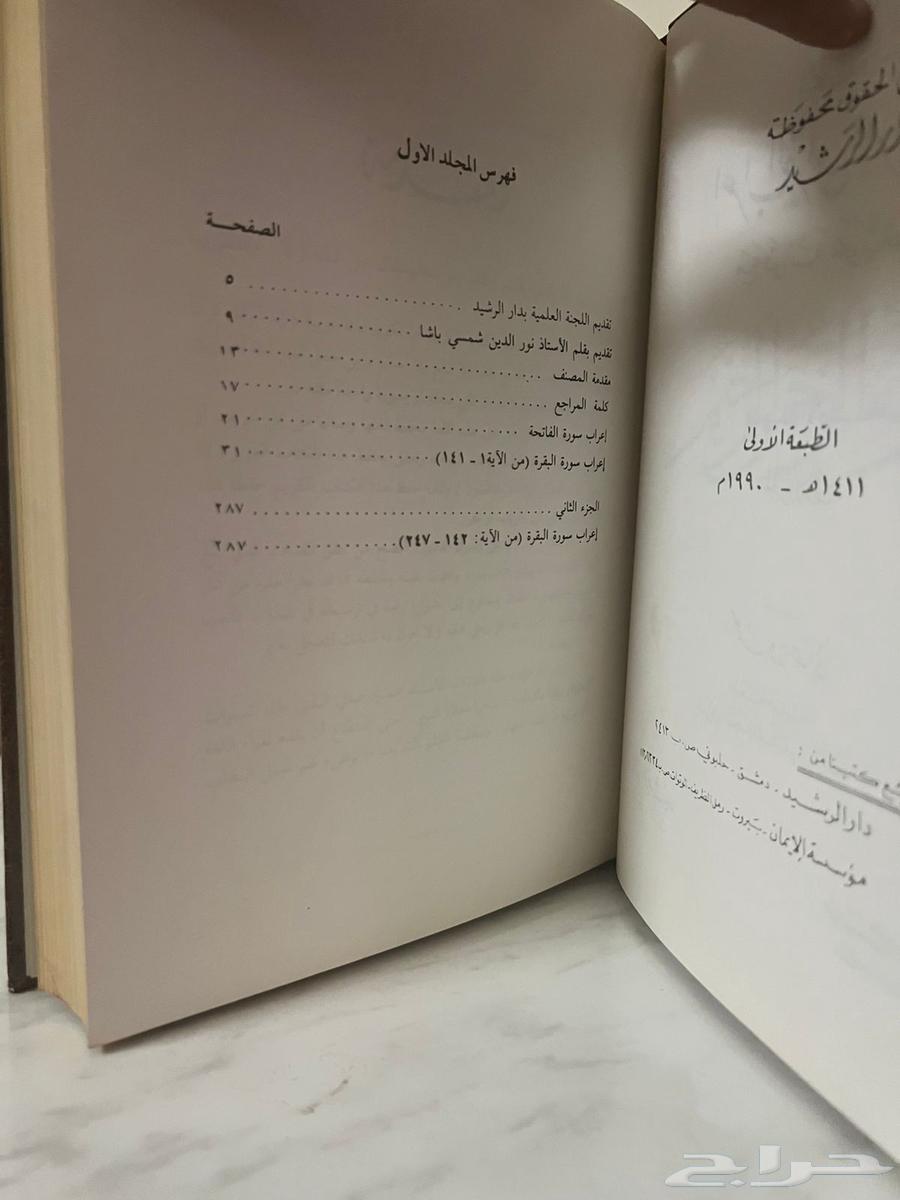 الحقوق محفوظة
دار الرشيد
الطبعة الأولى
١٤١١هـ - ١٩٩٠م
كتبنا من :
دار الرشيد - دمشق - حلبوني ص.ب ٢٤١٣
مؤسسة الإيمان - بيروت - رمل الظريف
فهرس المجلد الأول
الصفحة
تقديم اللجنة العلمية بدار الرشيد ..................... ٥
تقديم بقلم الأستاذ نور الدين شمسي باشا ..................... ٩
مقدمة المصنف ..................... ١٣
كلمة المراجع ..................... ١٧
إعراب سورة الفاتحة ..................... ٢١
إعراب سورة البقرة (من الآية١ - ١٤١) ..................... ٣١
الجزء الثاني ..................... ٢٨٧
إعراب سورة البقرة (من الآية: ١٤٢ - ٢٤٧) ..................... ٢٨٧
حراج